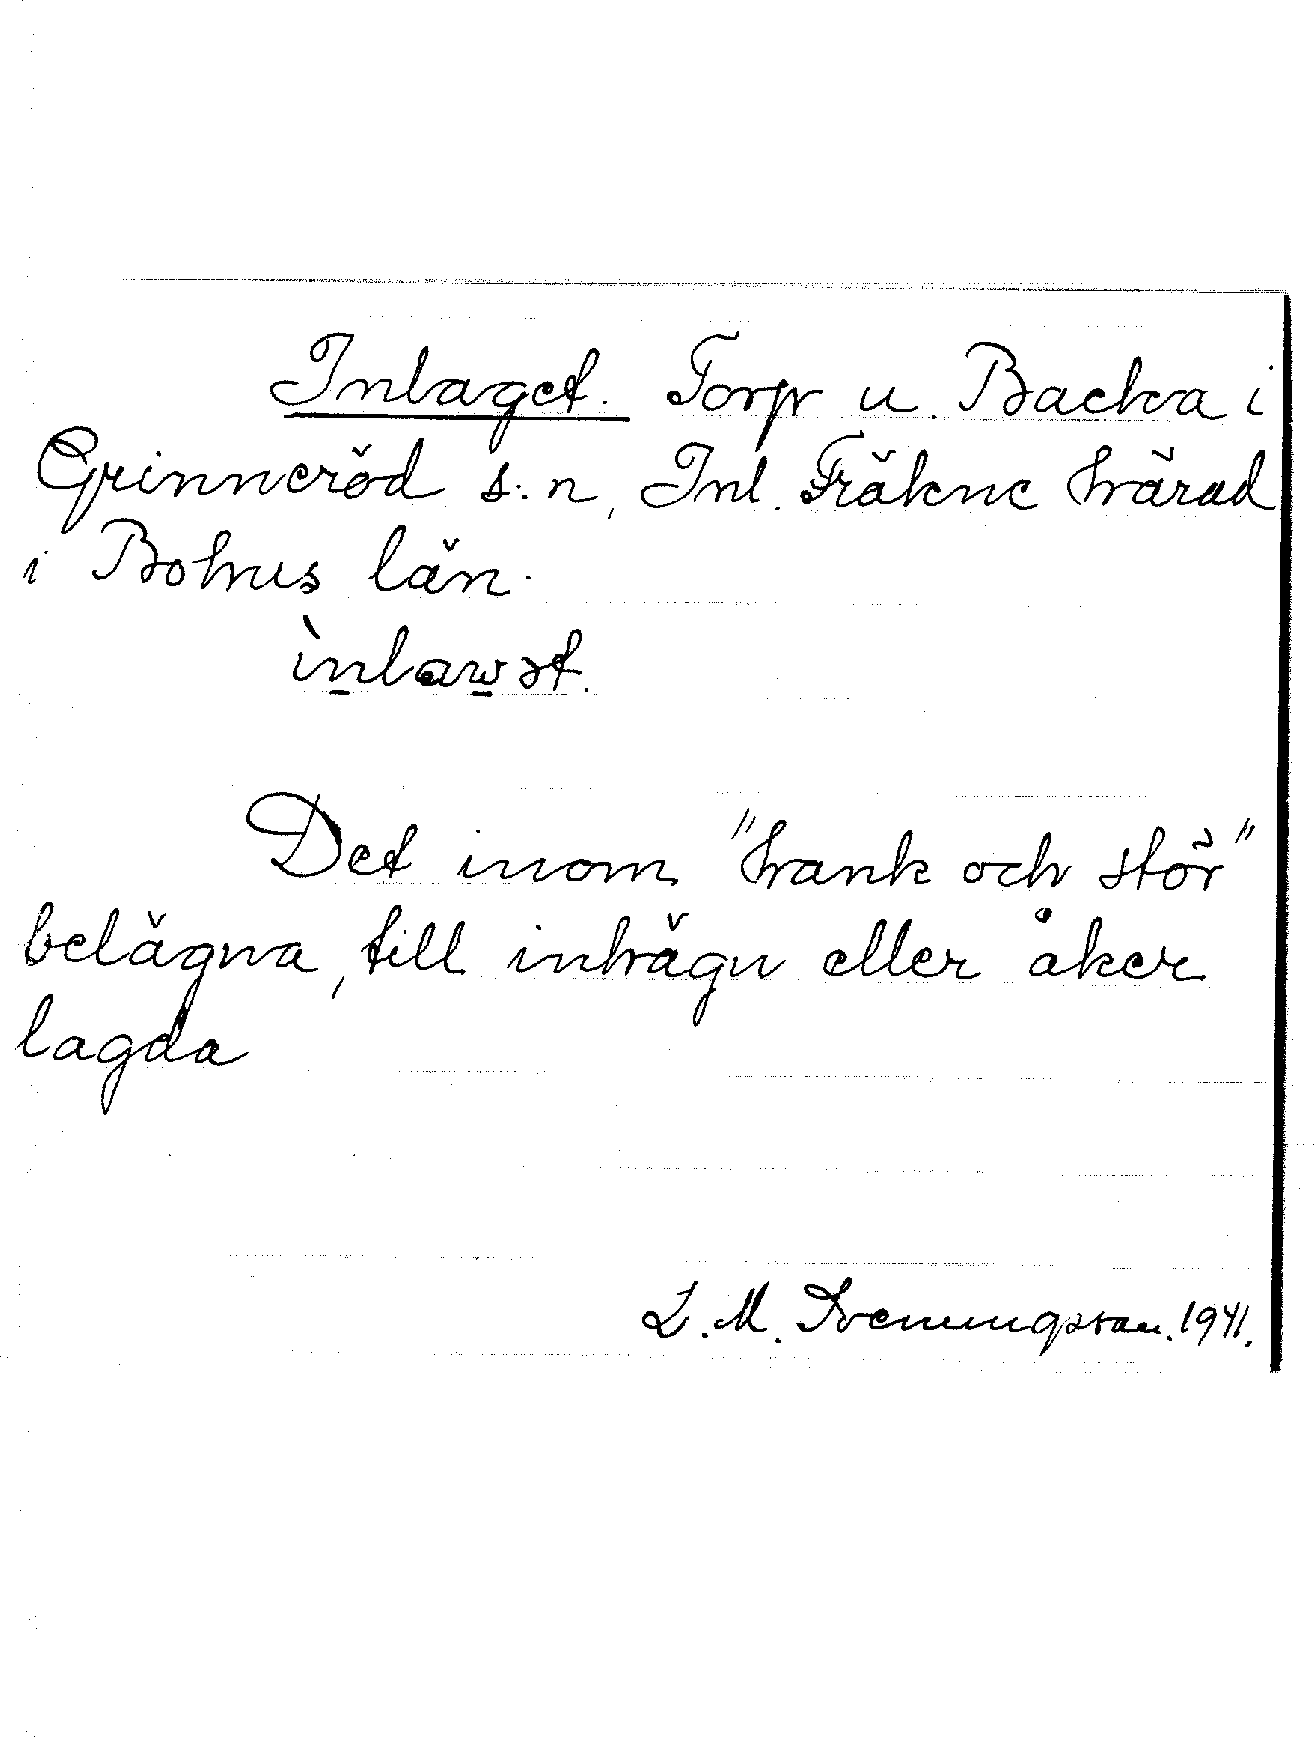 Inlaget. Torp u. Backa i
Grinneröd s:n, Inl. Fräkne härad
i Bohus län.
ìnlawət.
Det inom "hank och stör"
belägna, till inhägn eller åker
lagda
L. M. Svenungsson. 1941.